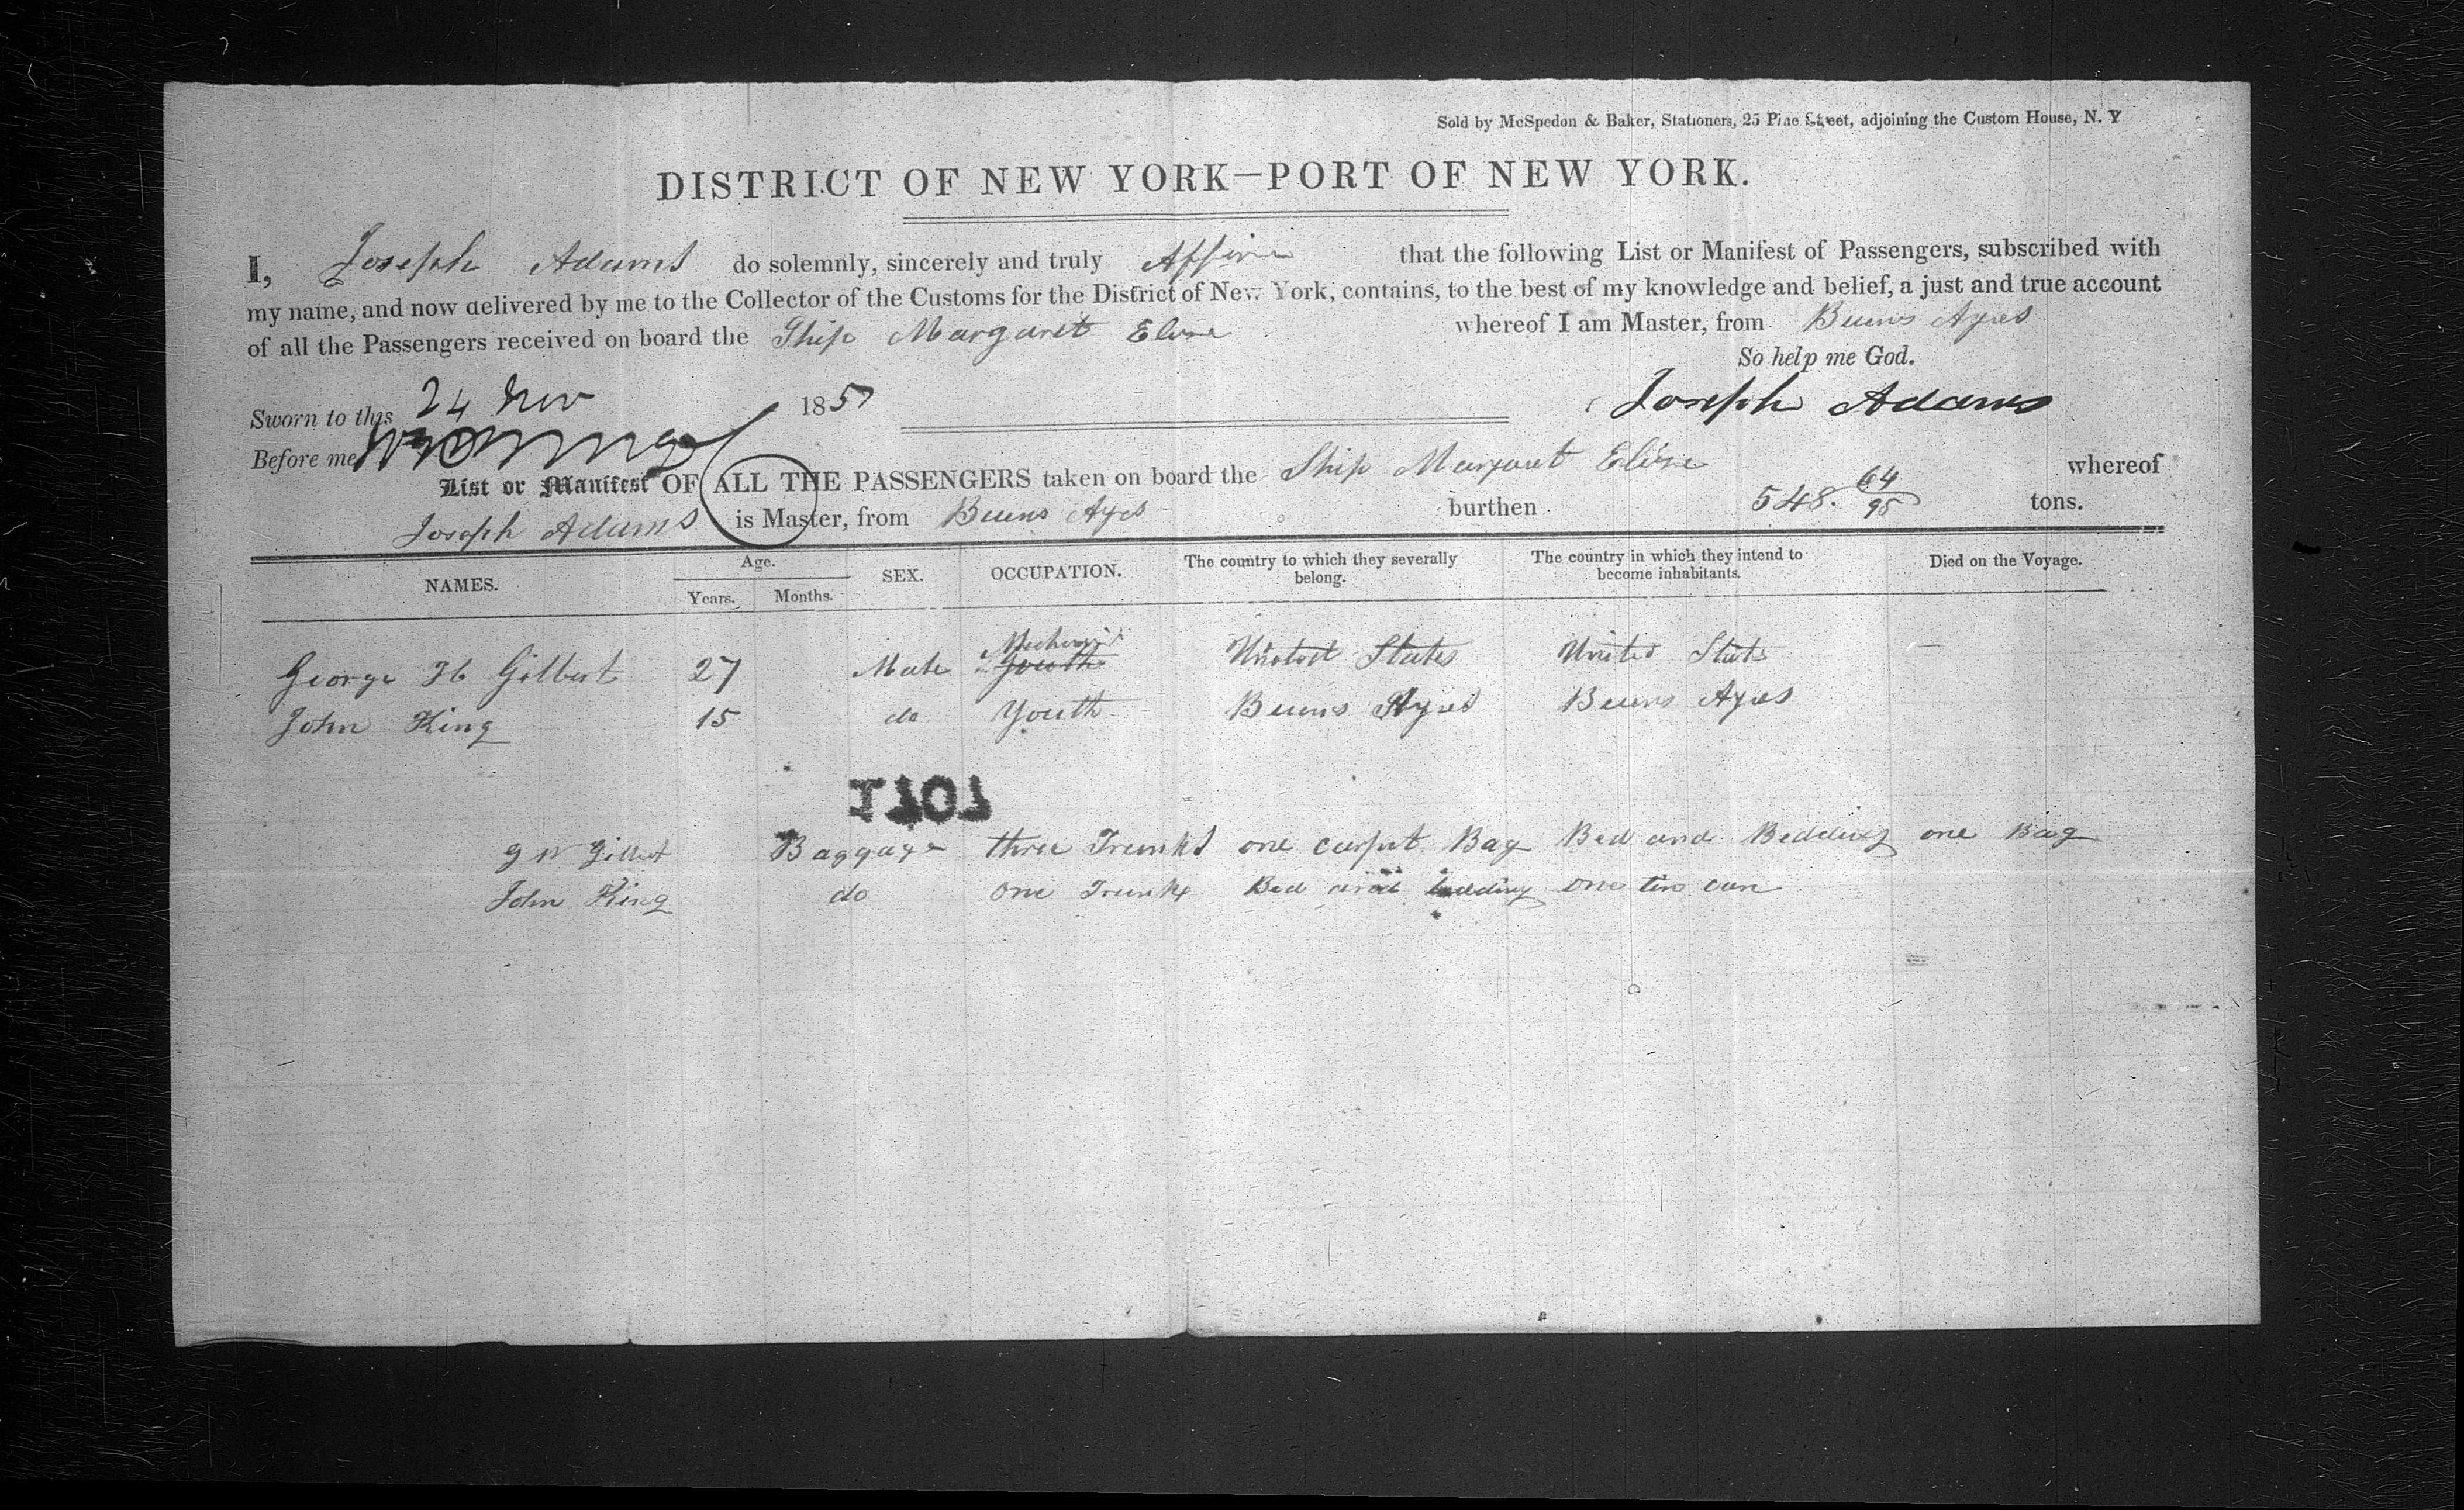 Sold by McSpedon & Baker, Stationers, 25 Pine Street, adjoining the Custom House, N. Y
DISTRICT OF NEW YORK—PORT OF NEW YORK.
I, Joseph Adams do solemnly, sincerely and truly Affirm that the following List or Manifest of Passengers, subscribed with
my name, and now delivered by me to the Collector of the Customs for the District of New York, contains, to the best of my knowledge and belief, a just and true account
of all the Passengers received on board the Ship Margaret Elise whereof I am Master, from Buens Ayres
So help me God.
Sworn to this 24 Nov 1857 Joseph Adams
Before me
List or Manifest OF ALL THE PASSENGERS taken on board the Ship Margaret Elise whereof
Joseph Adams is Master, from Buens Ayes burthen 548. 64/95 tons.
NAMES. Age. Years. Months. SEX. OCCUPATION. The country to which they severally belong. The country in which they intend to become inhabitants. Died on the Voyage.
George H Gilbert 27 Male Mechanic Youth United States United States —
John King 15 do Youth Buens Ayres Buens Ayres
1707
G W Gilbert Baggage three Trunks one carpet Bag Bed and Bedding one Bag
John King do One Trunk Bed and bedding one tin can